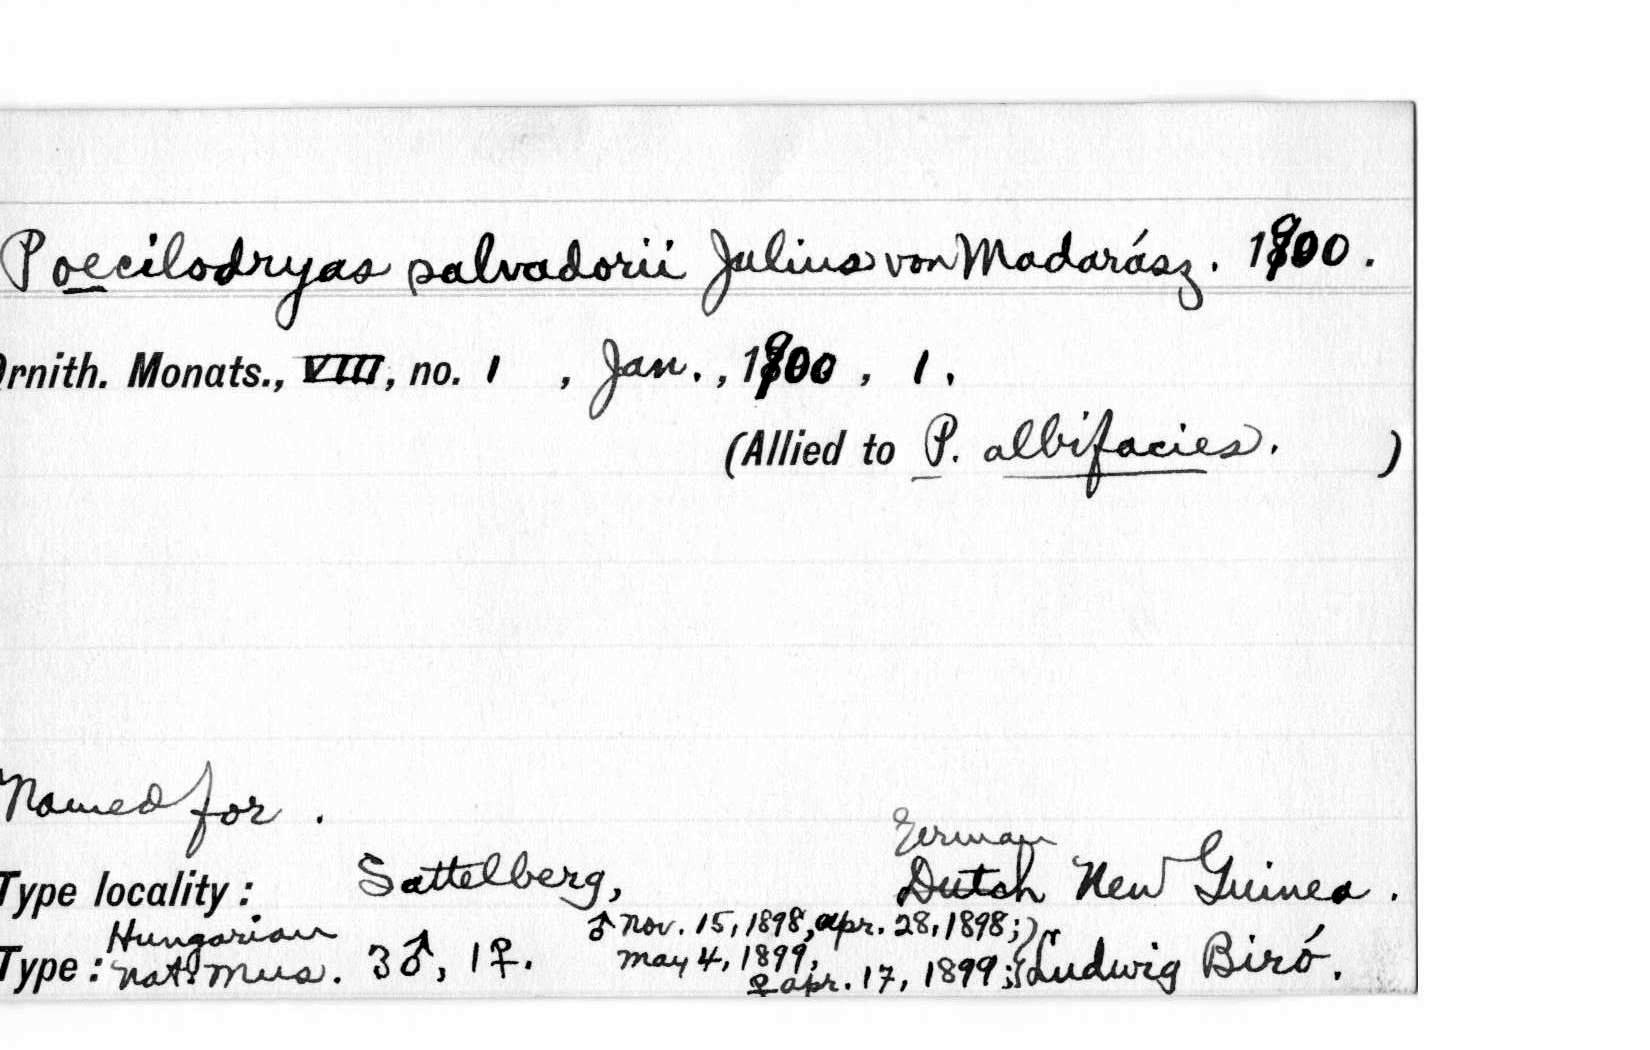 Poecilodryas salvadorii Julius von Madarász. 1900.
Ornith. Monats., VIII, no. 1 , Jan. , 1900 , 1 .
(Allied to P. albifacies. )
Named for .
German
Type locality: Sattelberg, Dutch New Guinea .
Hungarian ♂ Nov. 15, 1898, Apr. 28, 1898;
Type: Nat. Mus. 3♂, 1♀. May 4, 1899, Ludwig Biró.
♀ Apr. 17, 1899;